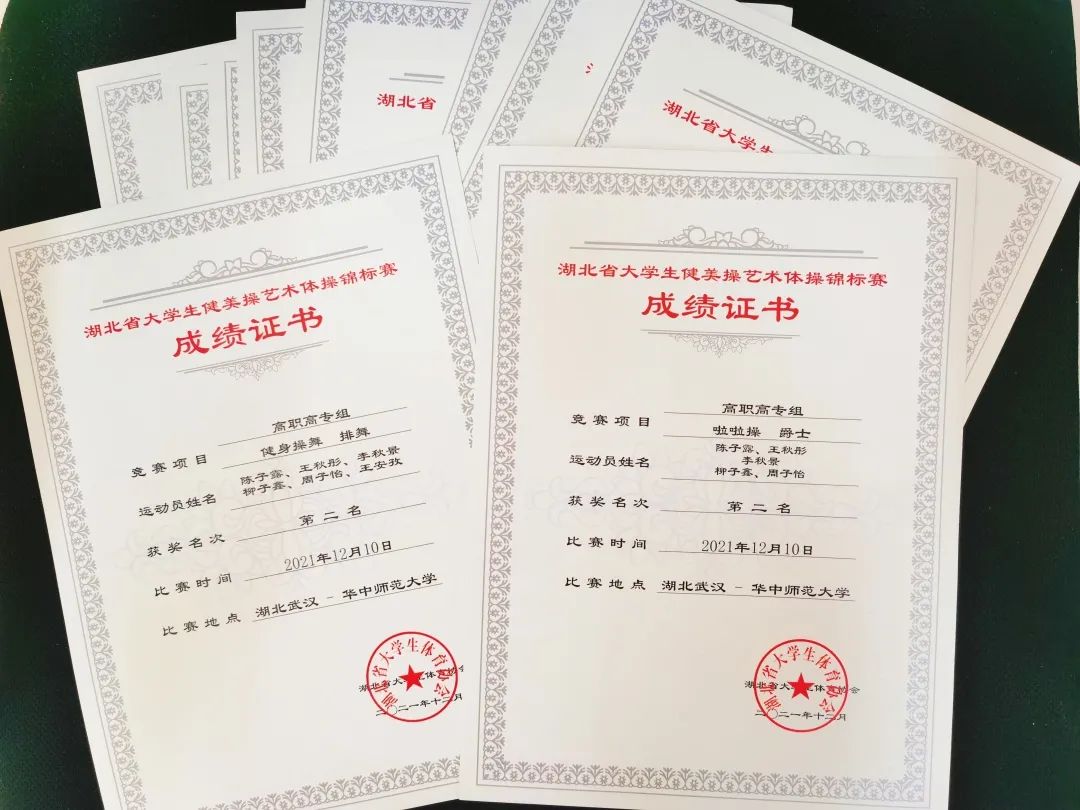 湖北省
湖北省大学生
湖北省大学生健美操艺术体操锦标赛
成绩证书
高职高专组
竞赛项目 健身操舞 排舞
运动员姓名 陈子露、王秋彤、李秋景
柳子鑫、周子怡、王安孜
获奖名次 第二名
比赛时间 2021年12月10日
比赛地点 湖北武汉 - 华中师范大学
湖北省大学生体育协会
二〇二一年十二月
湖北省大学生健美操艺术体操锦标赛
成绩证书
高职高专组
竞赛项目 啦啦操 爵士
运动员姓名 陈子露、王秋彤
李秋景
柳子鑫、周子怡
获奖名次 第二名
比赛时间 2021年12月10日
比赛地点 湖北武汉 - 华中师范大学
湖北省大学生体育协会
二〇二一年十二月